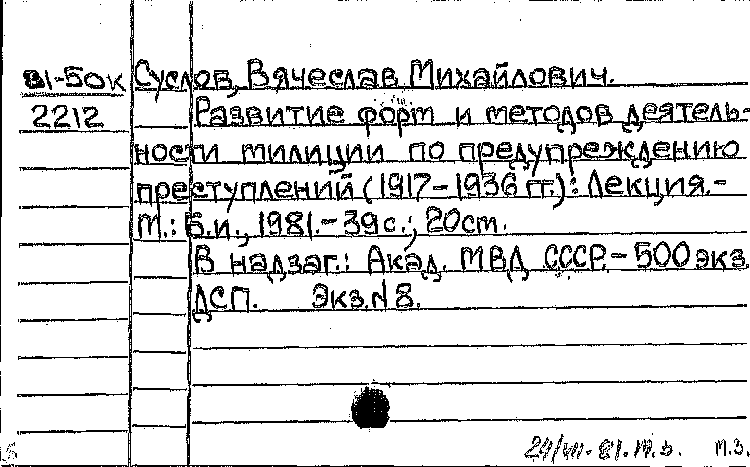 81-50к Суслов, Вячеслав Михайлович.
2212 Развитие форм и методов деятель-
ности милиции по предупреждению
преступлений (1917-1936 гг.): Лекция.-
М.: Б.и., 1981.-39с.; 20см.
В надзаг.: Акад. МВД СССР.-500 экз.
ДСП. Экз.N 8.
24/VII-81. М.З. М.З.